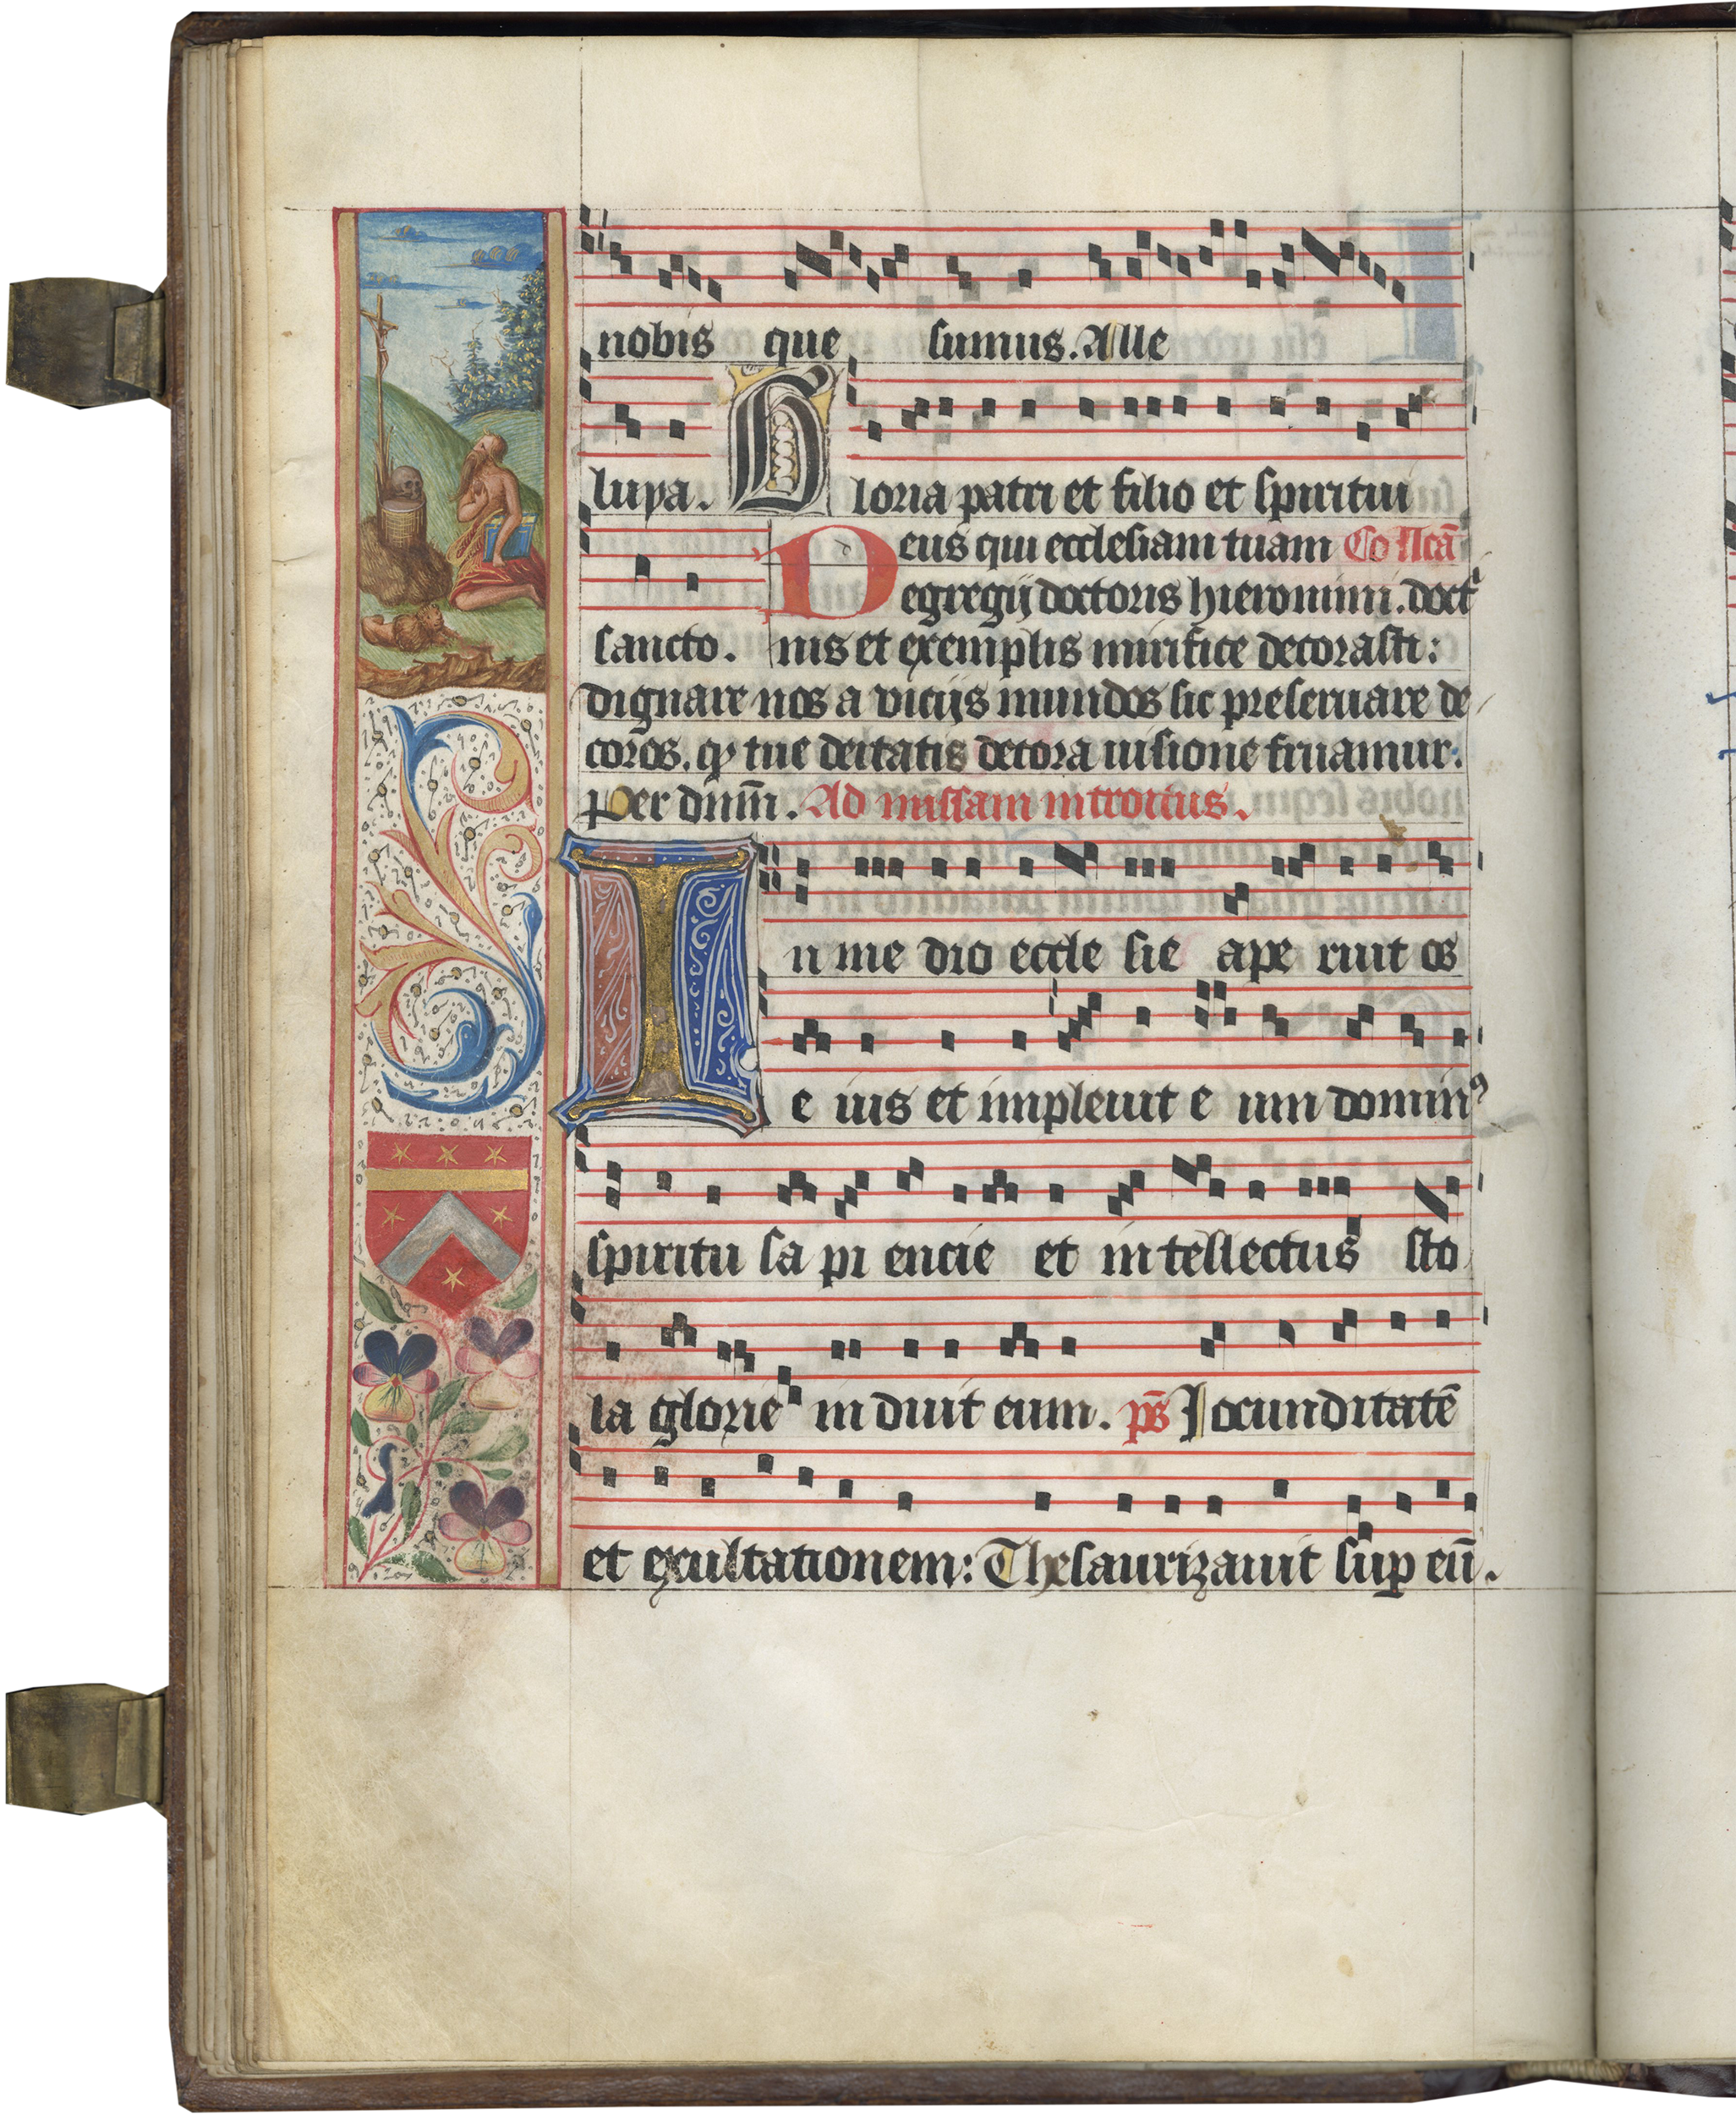 nobis que sumus. Alle
luya. Gloria patri et filio et spiritui
sancto.
Deus qui ecclesiam tuam Collcā
egregij doctoris hieronimi. doct
nis et exemplis mirifice decorasti:
dignare nos a vicijs mundos sic preseruare de
coros. ꝙ tue deitatis decora uisione fruamur:
Per dnm̄. Ad missam introitus.
In me dio eccle sie ape ruit os
e ius et impleuit e um dominꝰ
spiritu sa pi encie et in tellectus sto
la glorie in duit eum. ps̄ Jocunditatē
et exultationem: Thesaurizauit suꝑ eū.